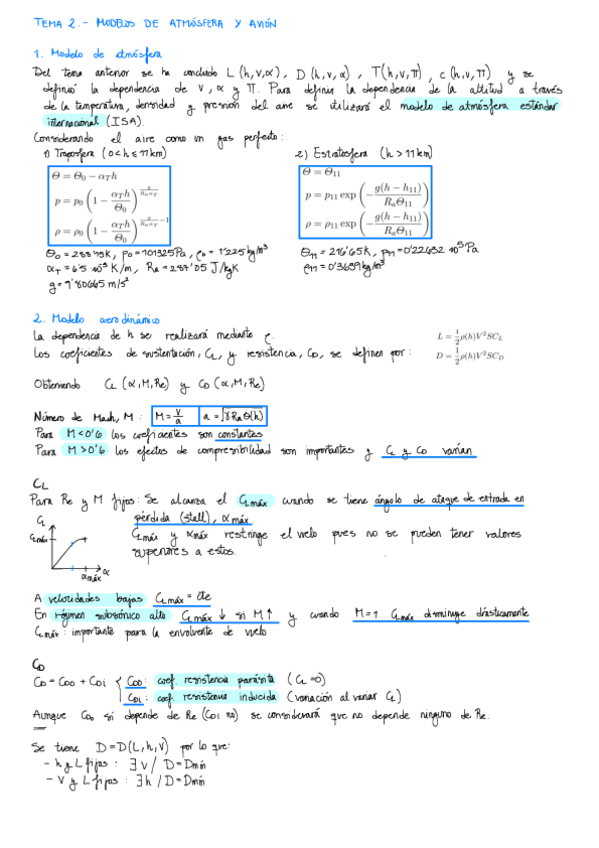 TEMA 2.- MODELOS DE ATMÓSFERA Y AVIÓN
1. Modelo de atmósfera
Del tema anterior se ha concluido L (h,V,α), D (h,V,α), T(h,V,Π), c (h,V,Π) y se
definió la dependencia de V, α y Π. Para definir la dependencia de la altitud a través
de la temperatura, densidad y presión del aire se utilizará el modelo de atmósfera estándar
internacional (ISA).
Considerando el aire como un gas perfecto:
1) Troposfera (0<h≤11km)
Θ = Θ₀ − α_T h
p = p₀ (1 − α_T h / Θ₀)^(g / R_a α_T)
ρ = ρ₀ (1 − α_T h / Θ₀)^(g / R_a α_T − 1)
Θ₀ = 288'15K, p₀ = 101325Pa, ρ₀ = 1'225 kg/m³
α_T = 6'5 10⁻³ K/m, Ra = 287'05 J/kgK
g = 9'80665 m/s²
2) Estratosfera (h > 11km)
Θ = Θ₁₁
p = p₁₁ exp (− g(h − h₁₁) / R_a Θ₁₁)
ρ = ρ₁₁ exp (− g(h − h₁₁) / R_a Θ₁₁)
Θ₁₁ = 216'65K, p₁₁ = 0'22632 10⁵ Pa
ρ₁₁ = 0'3639 kg/m³
2. Modelo aerodinámico
La dependencia de h se realizará mediante ρ.
Los coeficientes de sustentación, CL, y resistencia, CD, se definen por:
L = ½ρ(h)V²SC_L
D = ½ρ(h)V²SC_D
Obteniendo CL (α,M,Re) y CD (α,M,Re)
Número de Mach, M: M = V/a a = √γRaΘ(h)
Para M<0'6 los coeficientes son constantes
Para M>0'6 los efectos de compresibilidad son importantes y CL y CD varían
CL
Para Re y M fijos: Se alcanza el CLmáx cuando se tiene ángulo de ataque de entrada en
pérdida (stall), αmáx
CLmáx y αmáx restringe el vuelo pues no se pueden tener valores
superiores a estos.
CL
CLmáx
αmáx
α
A velocidades bajas CLmáx = cte
En régimen subsónico alto CLmáx ↓ si M↑ y cuando M=1 CLmáx disminuye drásticamente
CLmáx: importante para la envolvente de vuelo
CD
CD = CD0 + CDi { CD0: coef. resistencia parásita (CL=0)
CDi: coef. resistencia inducida (variación al variar CL)
Aunque CD0 si depende de Re (CDi no) se considerará que no depende ninguno de Re.
Se tiene D=D(L,h,V) por lo que:
- h y L fijas: ∃ V / D=Dmín
- V y L fijas: ∃ h / D=Dmín